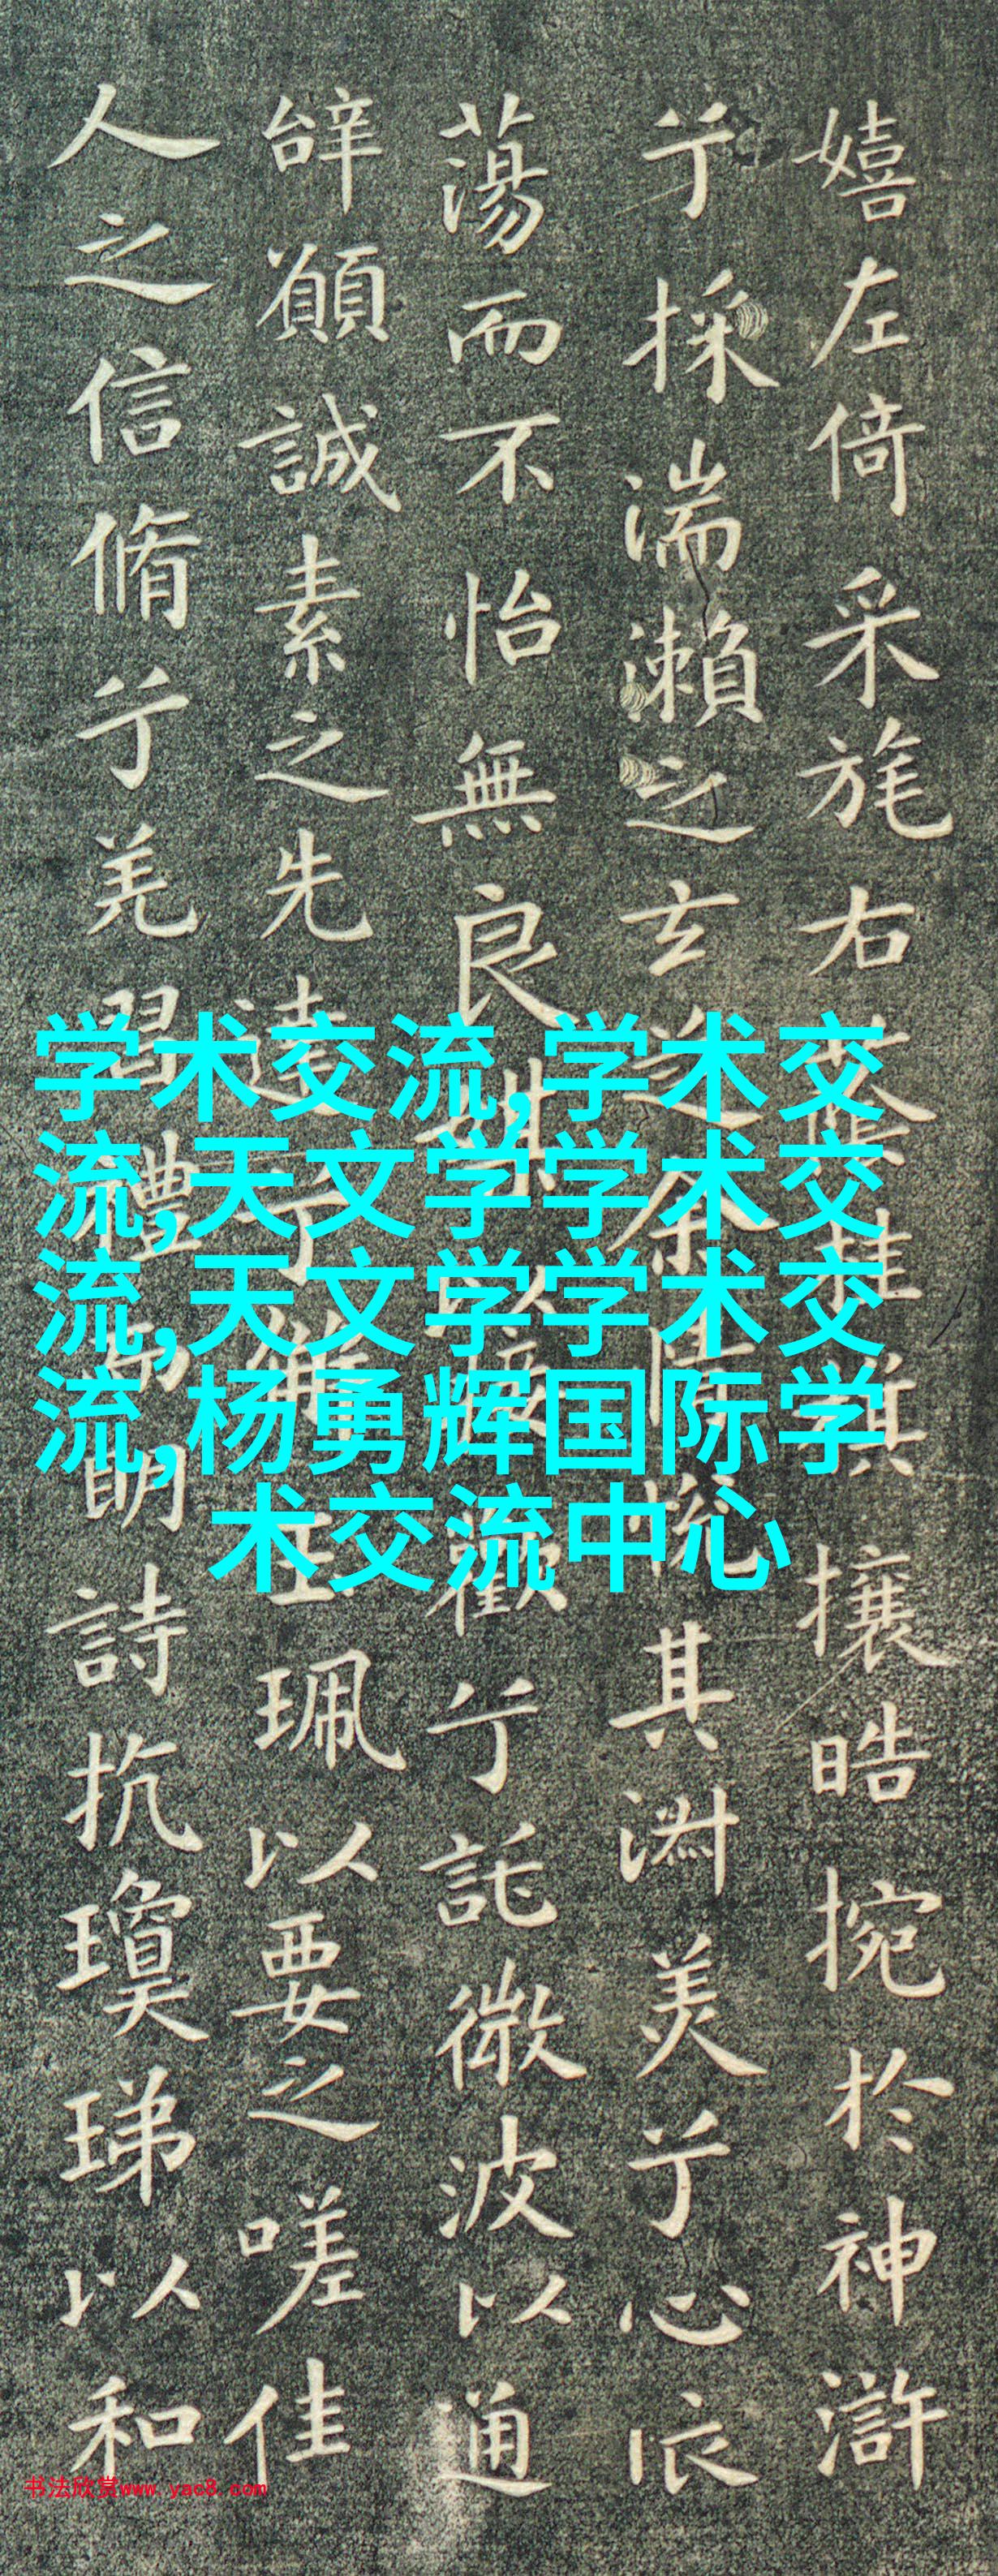 嬉左倚采旄右蔭桂旗攘晧捥於神滸
兮採湍瀨之玄芝余情悅其淑美兮心依
蕩而不怡無良媒以接歡兮託微波以通
辝願誠素之先達兮解玉珮以要之嗟佳
人之信脩兮羌習禮而明詩抗瓊珶以和
学术交流,学术交
流,天文学学术交
流,天文学学术交
流,杨勇辉国际学
术交流中心
书法欣赏www.yac8.com